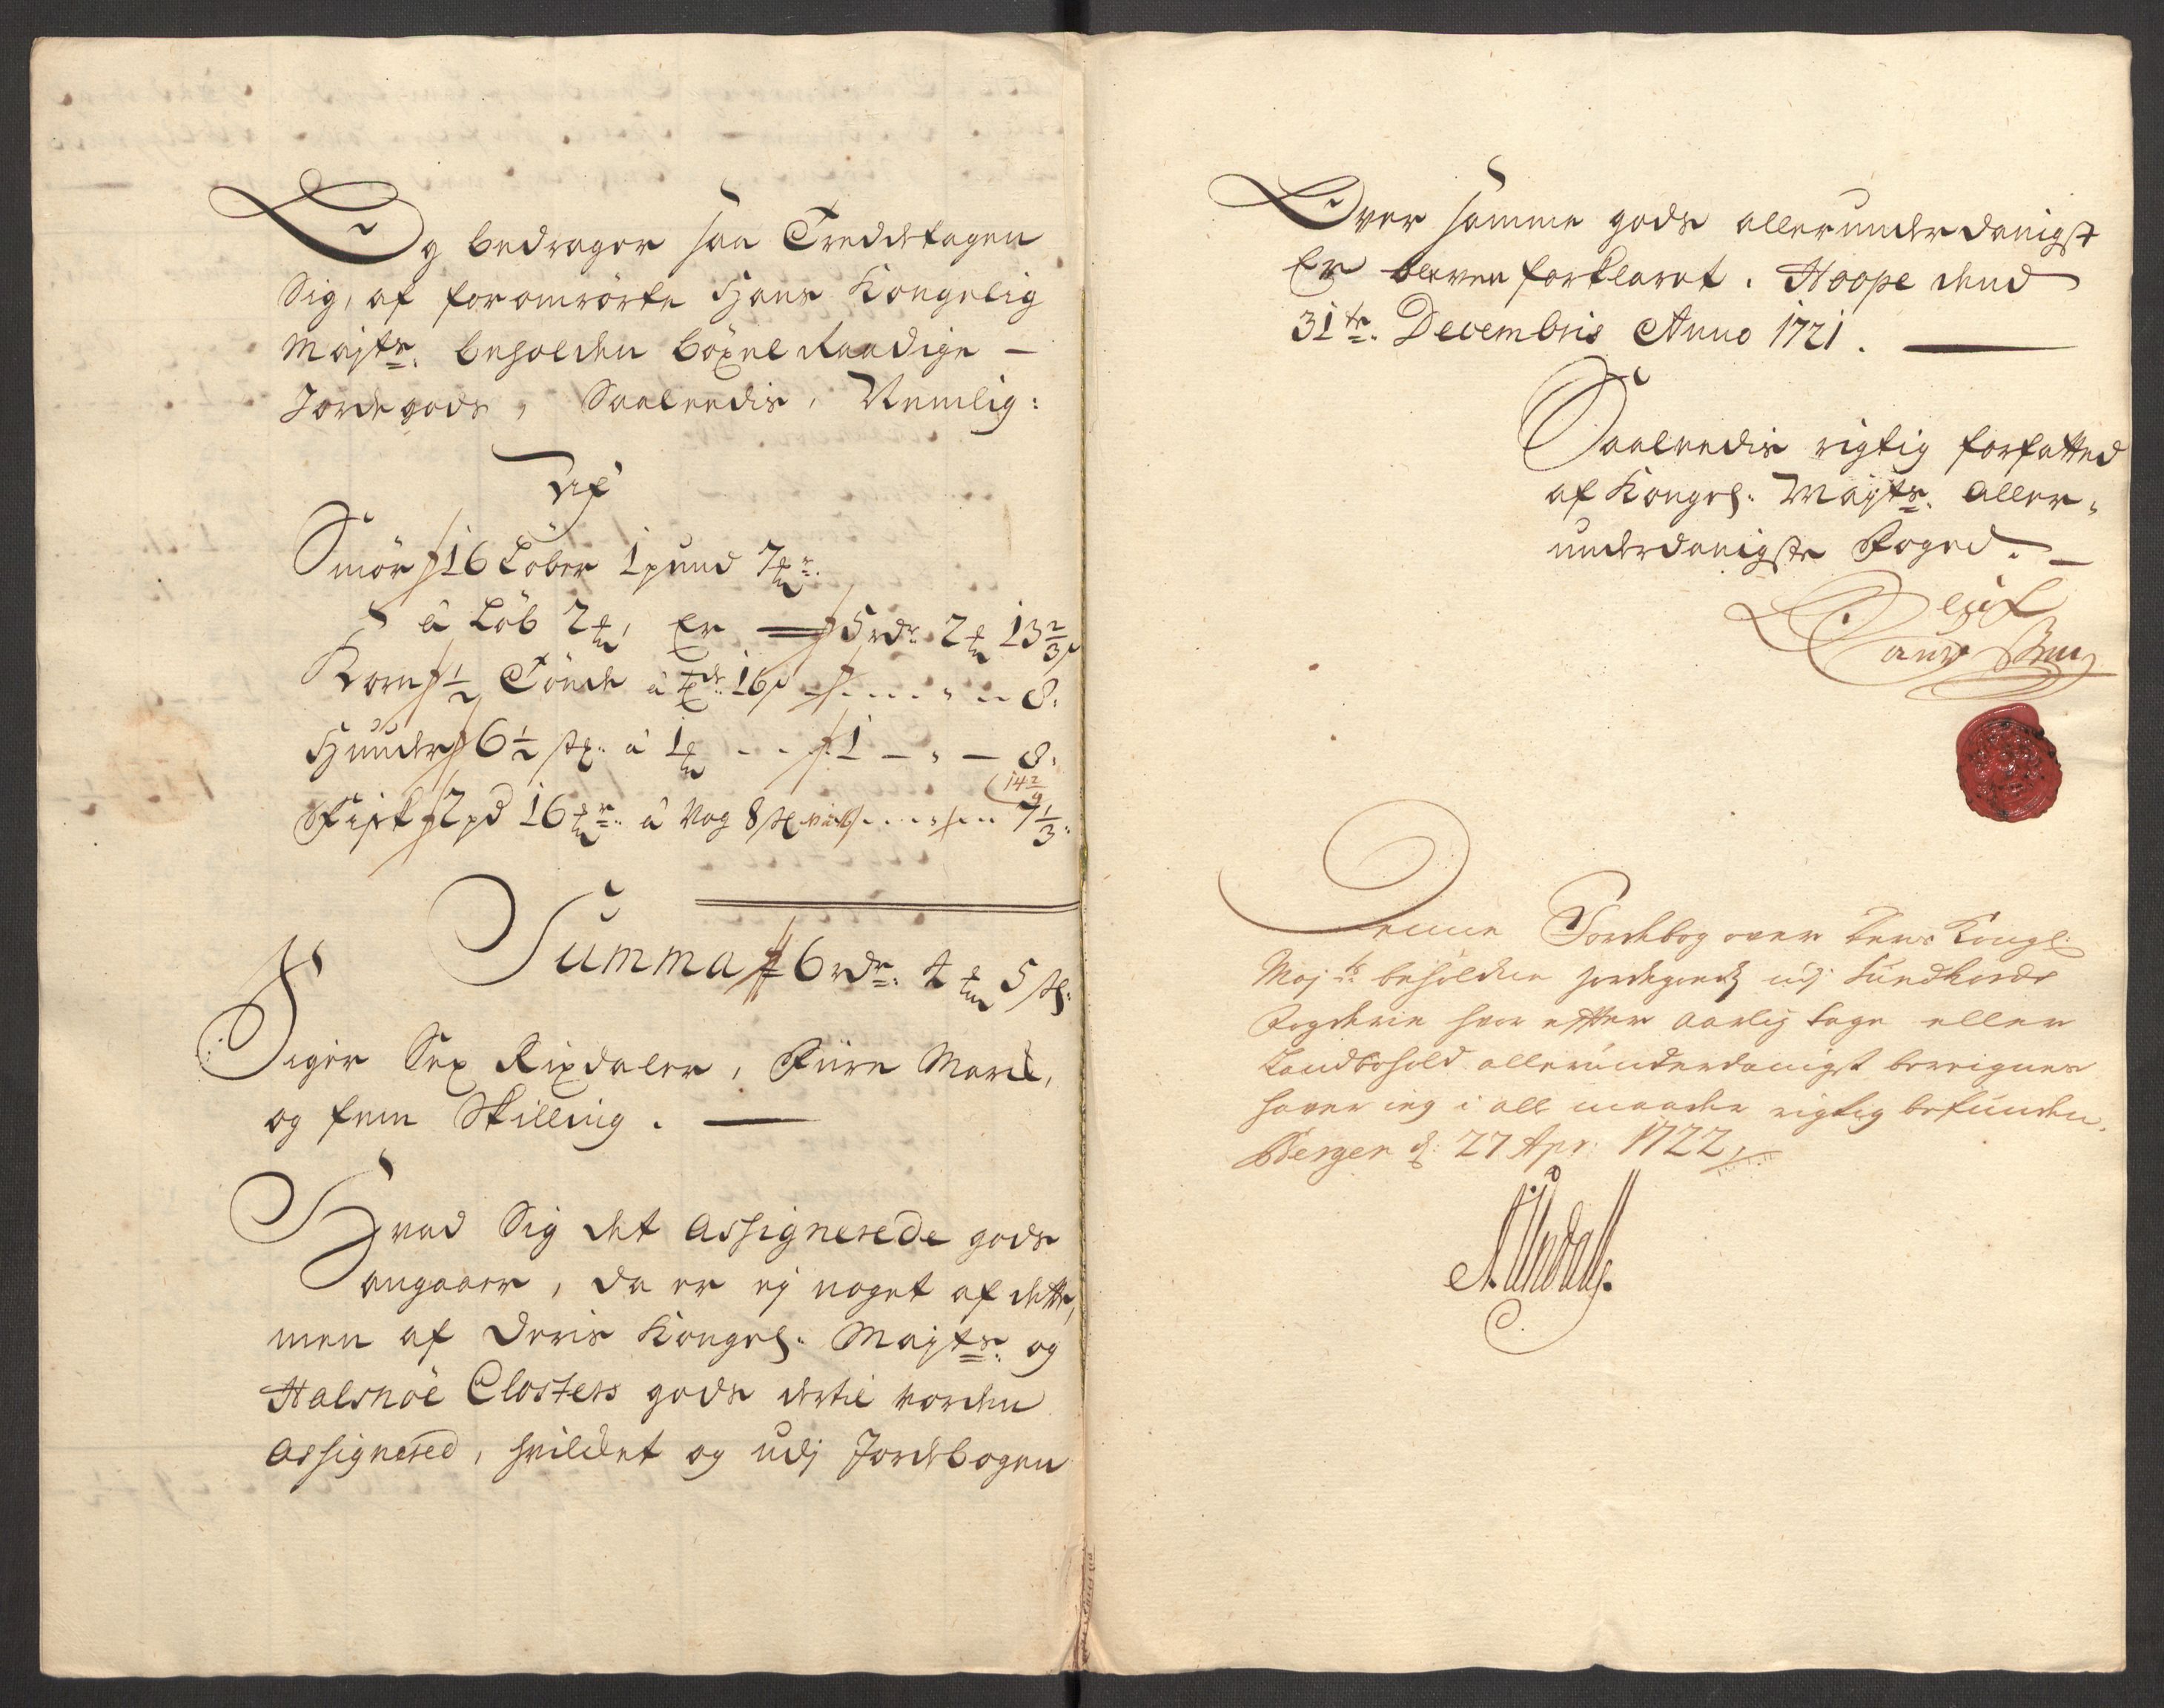 Og bedrager saa Treddetagen
Sig, af foromrörte Hans Kongelig
Mayts: beholden böxel Raadige —
Jordegods, Saaleedis, Nemlig:
Af
Smör 16 Löber 1 pund 7 mr:
â Löb 2 mk, Er — 5 rdr. 2 mk 13 2/3 s
Korn 1/2 Tönde â Tde 16 s .... " .. 8.
Huuder 6 1/2 st: â 1 mk .. 1 — " — 8.
14 2/9
Fisk 2 pd 16 mr: â Vog 8 s ..... 7 1/3.
Summa 6 rdr: 4 mk 5 s:
Siger Sex Rixdaler, Fiire Mark,
og fem Skilling. —
Hvad Sig det Assignerede gods
angaaer, da er ej noget af dette,
men af Deris Kongel: Mayts: og
Halsnöe Closters gods dertil vorden
Assignered, hvilket og udj Jordebogen
Over samme gods allerunderdanigst
Er bleven forklaret. Hoope dend
31te: Decembris Anno 1721. —
Saaleedis rigtig forfatted
af Kongel: Mayts: Aller-
underdanigste Foged. —
Denne Jordebog over Hans Kongl:
Maj:ts beholdne jordegods udj Sundhords
Fogderie hvor efter aarlig tage eller
Landbohold allerunderdanigst beregnes
haver ieg i all maader rigtig befunden.
Bergen d: 27 Apr: 1722
A. Undall.